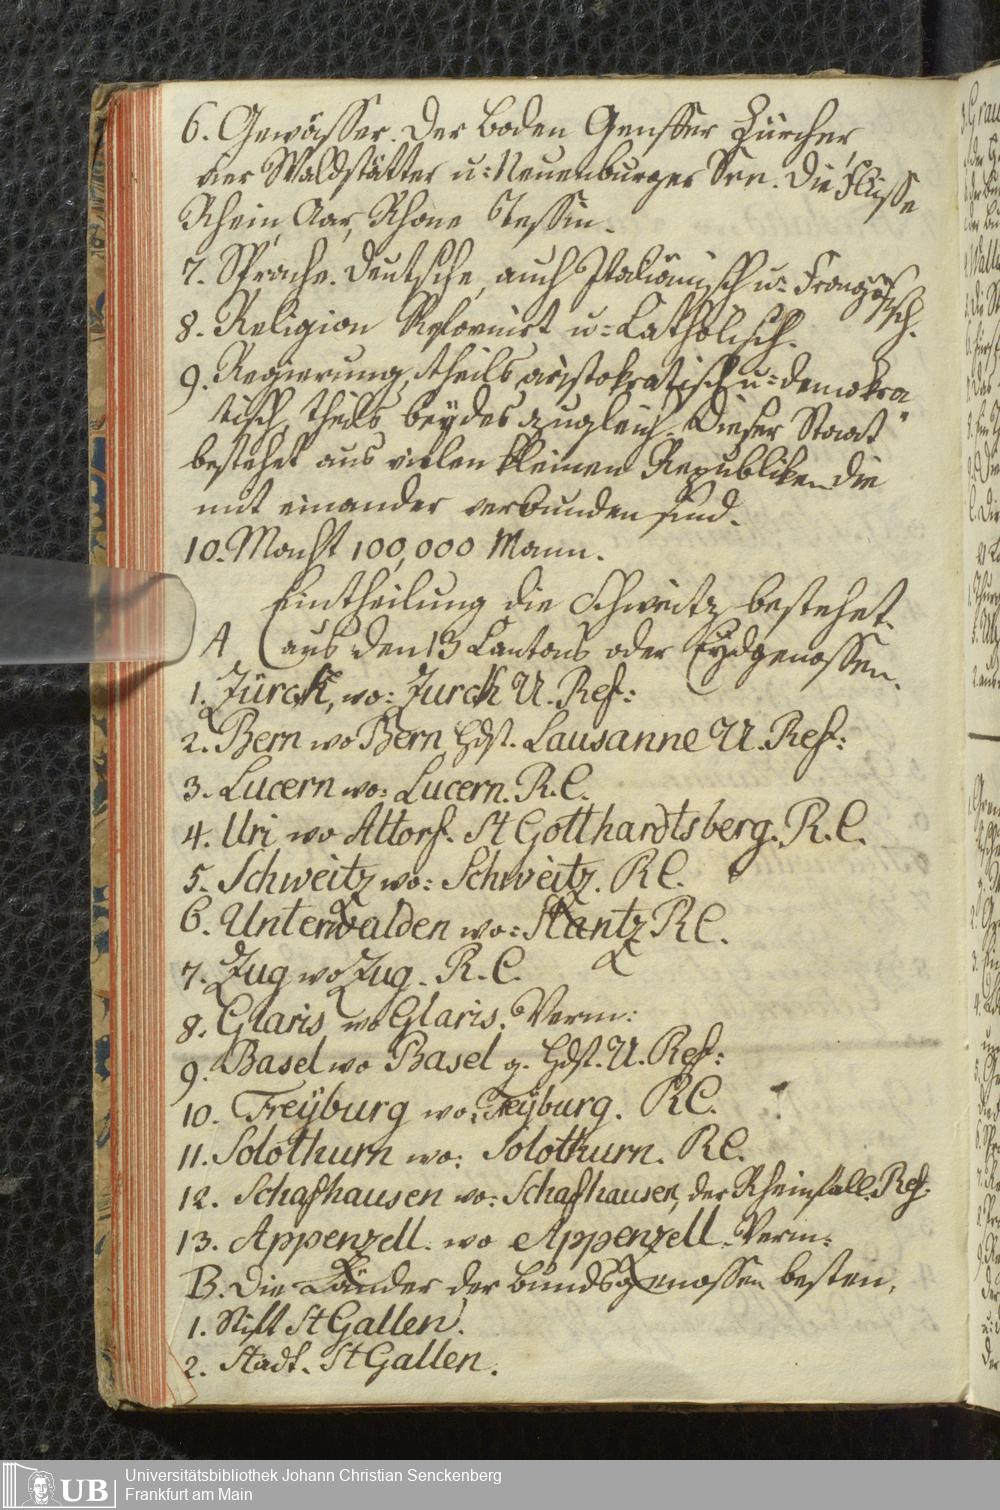 6. Gewässer. Der Boden Genffer Zürcher
vier Waldstätter u: Neuenburger See. Die Flüsse
Rhein, Aar, Rhone Tessin.
7. Sprache. Deutsche, auch Italiänisch u: Französ
isch.
8. Religion Reformirt u: Catholisch.
9. Regierung, theils aristokratisch u: demokra
tisch, theils beydes zugleich. Dieser Staat
bestehet aus vielen kleinen Republiken die
mit einander verbunden sind.
10. Macht 100,000 Mann.
Eintheilung die Schweitz bestehet
A aus den 13 Cantons oder Eydgenossen.
1. Zürch, wo: Zurch U. Ref:
2. Bern wo Bern Hdst. Lausanne U. Ref:
3. Lucern wo: Lucern. R. C.
4. Uri wo Altorf. St Gotthardtsberg. R. C.
5. Schweitz wo: Schweitz. R C.
6. Unterwalden wo: Stantz R C.
7. Zug wo Zug. R. C.
8. Glaris wo Glaris. Verm:
9. Basel wo Basel g. Hdst. U. Ref:
10. Freyburg wo: Freyburg. R C.
11. Solothurn wo: Solothurn. R C.
12. Schafhausen wo: Schafhausen, der Rheinfall. Ref.
13. Appenzell. wo Appenzell. Verm:
B. Die Länder der Bundsgenossen besten.
1. Stift St Gallen.
2. Stadt. St Gallen.
UB
Universitätsbibliothek Johann Christian Senckenberg
Frankfurt am Main